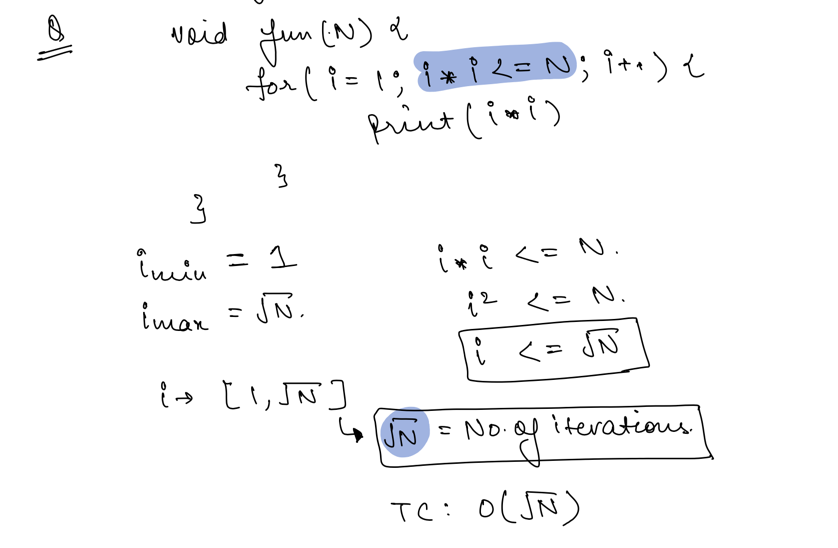 Q void fun(N) {
for( i = 1; i * i <= N; i++ ) {
print( i * i )
}
}
imin = 1
imax = √N.
i * i <= N.
i² <= N.
i <= √N
i → [1, √N]
↳ √N = No. of iterations.
TC: O(√N)